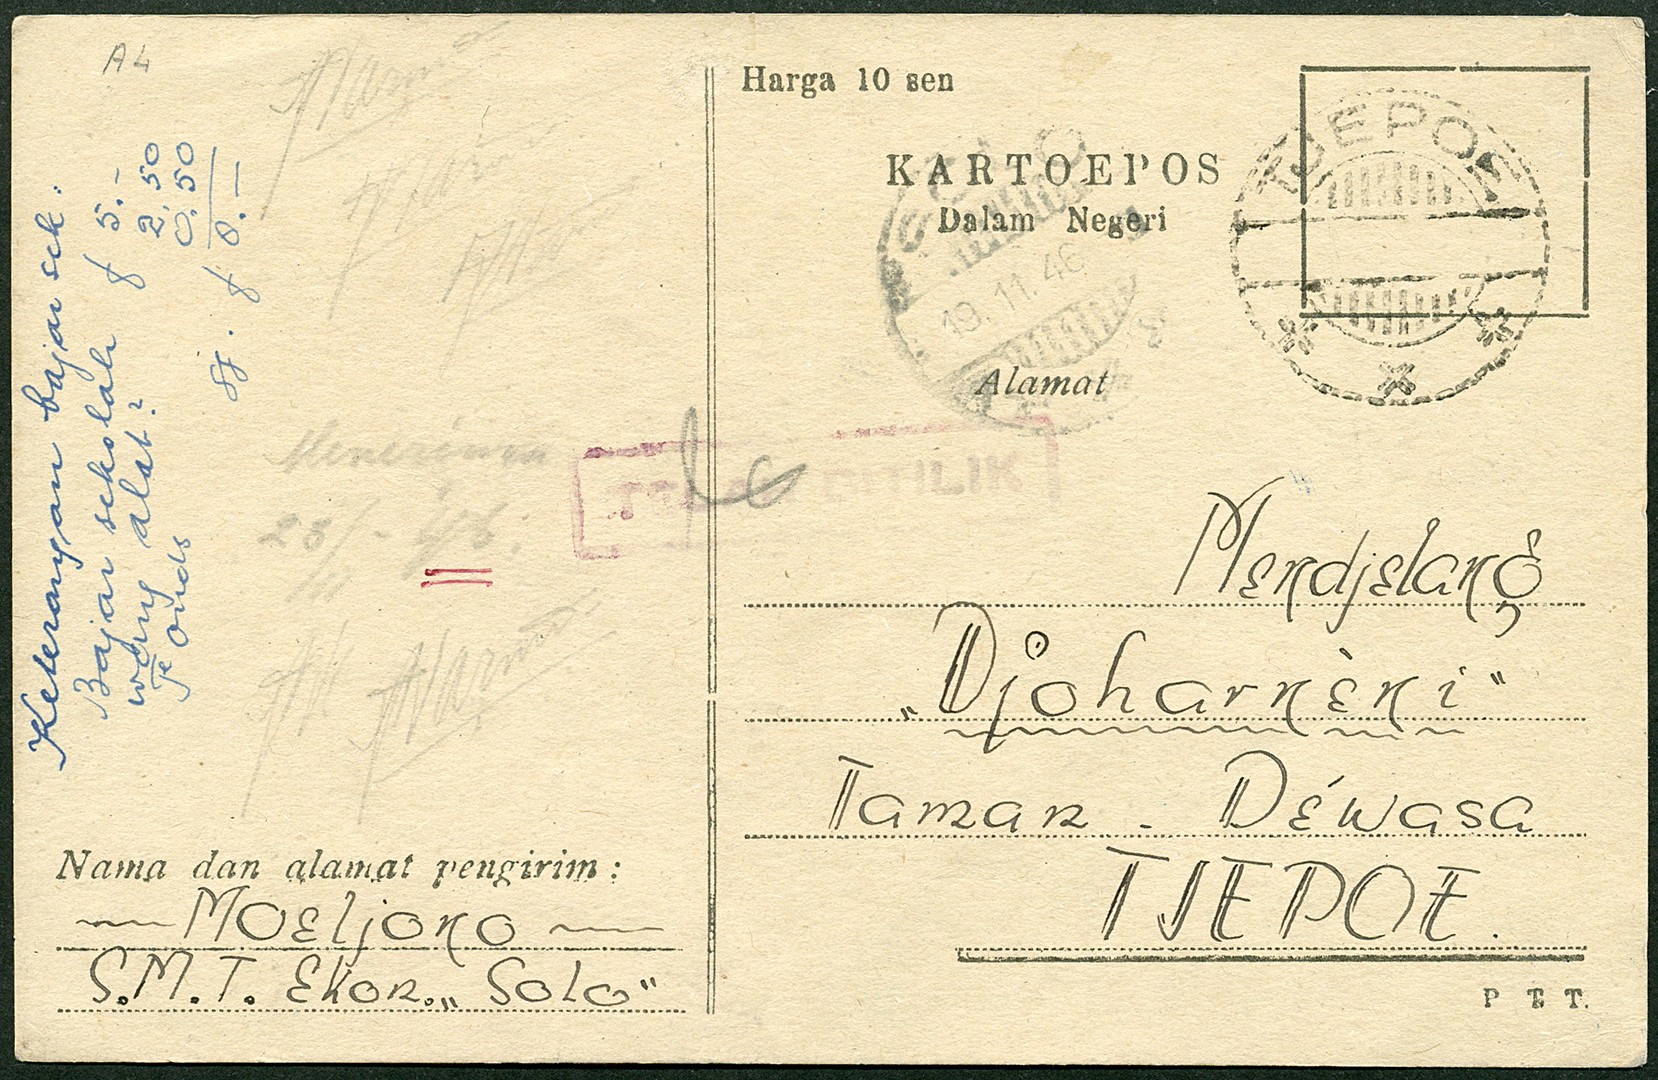 A4
Harga 10 sen
KARTOEPOS
Dalam Negeri
TJEPOE
SOLO
19.11.46
Alamat
DITILIK
Mendjelang
„Djoharnèni"
Taman - Déwasa
TJEPOE.
P T T.
Keterangan bajar sek:
Bajar sekolah f 5.-
wang alat² 2.50
Fonds 0.50
f 8.-
Menerima
23/- 46.
11
Nama dan alamat pengirim:
— Moeljono —
S.M.T. Ekon. „Solo"